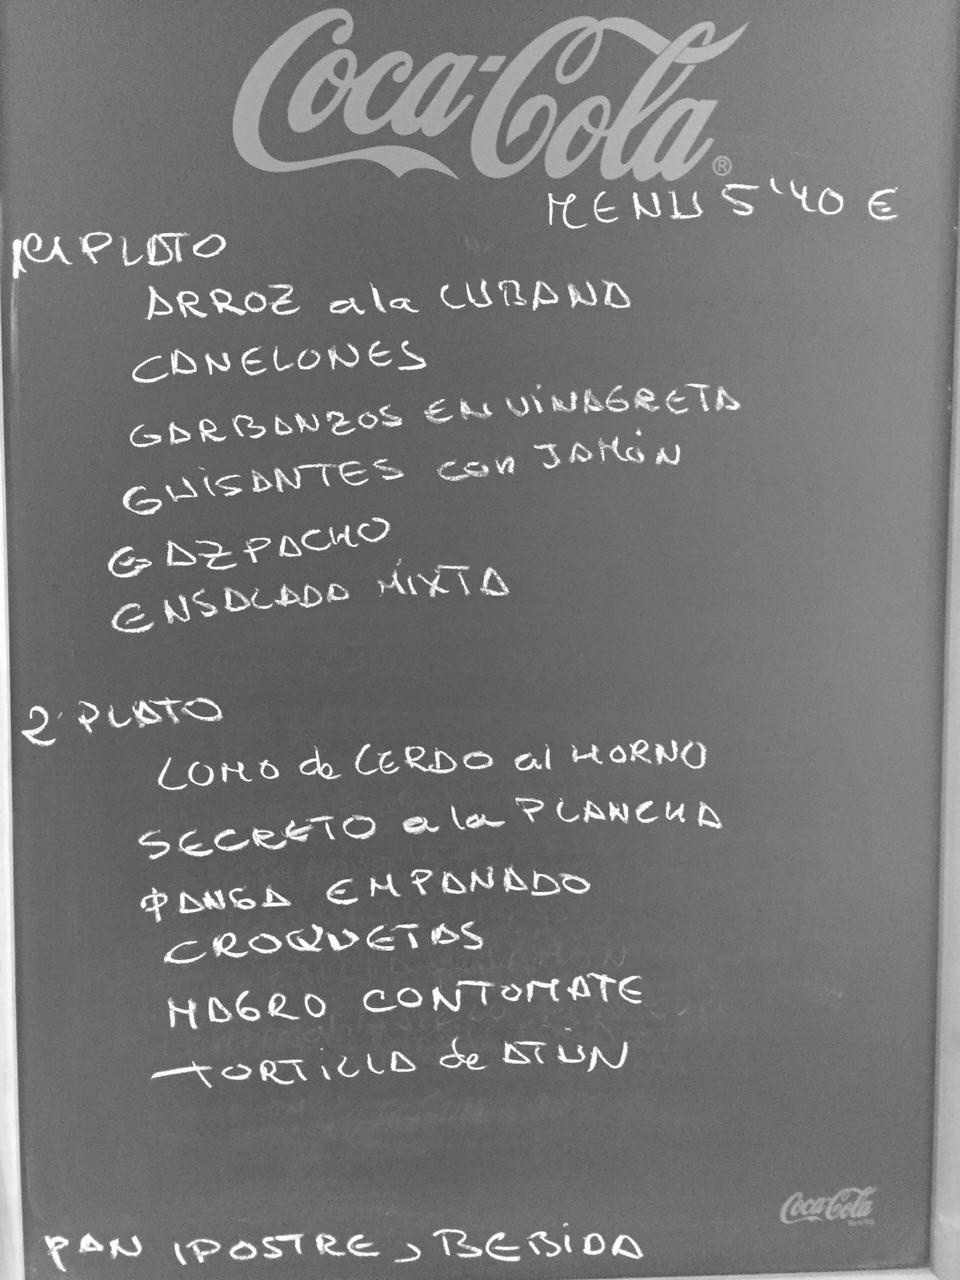 Coca-Cola®
MENU 5'40 €
1er PLATO
ARROZ a la CUBANA
CANELONES
GARBANZOS EN VINAGRETA
GUISANTES con JAMÓN
GAZPACHO
ENSALADA MIXTA
2º PLATO
LOMO de CERDO al HORNO
SECRETO a la PLANCHA
PANGA EMPANADO
CROQUETAS
MAGRO CON TOMATE
TORTILLA de ATÚN
Coca-Cola
PAN , POSTRE, BEBIDA